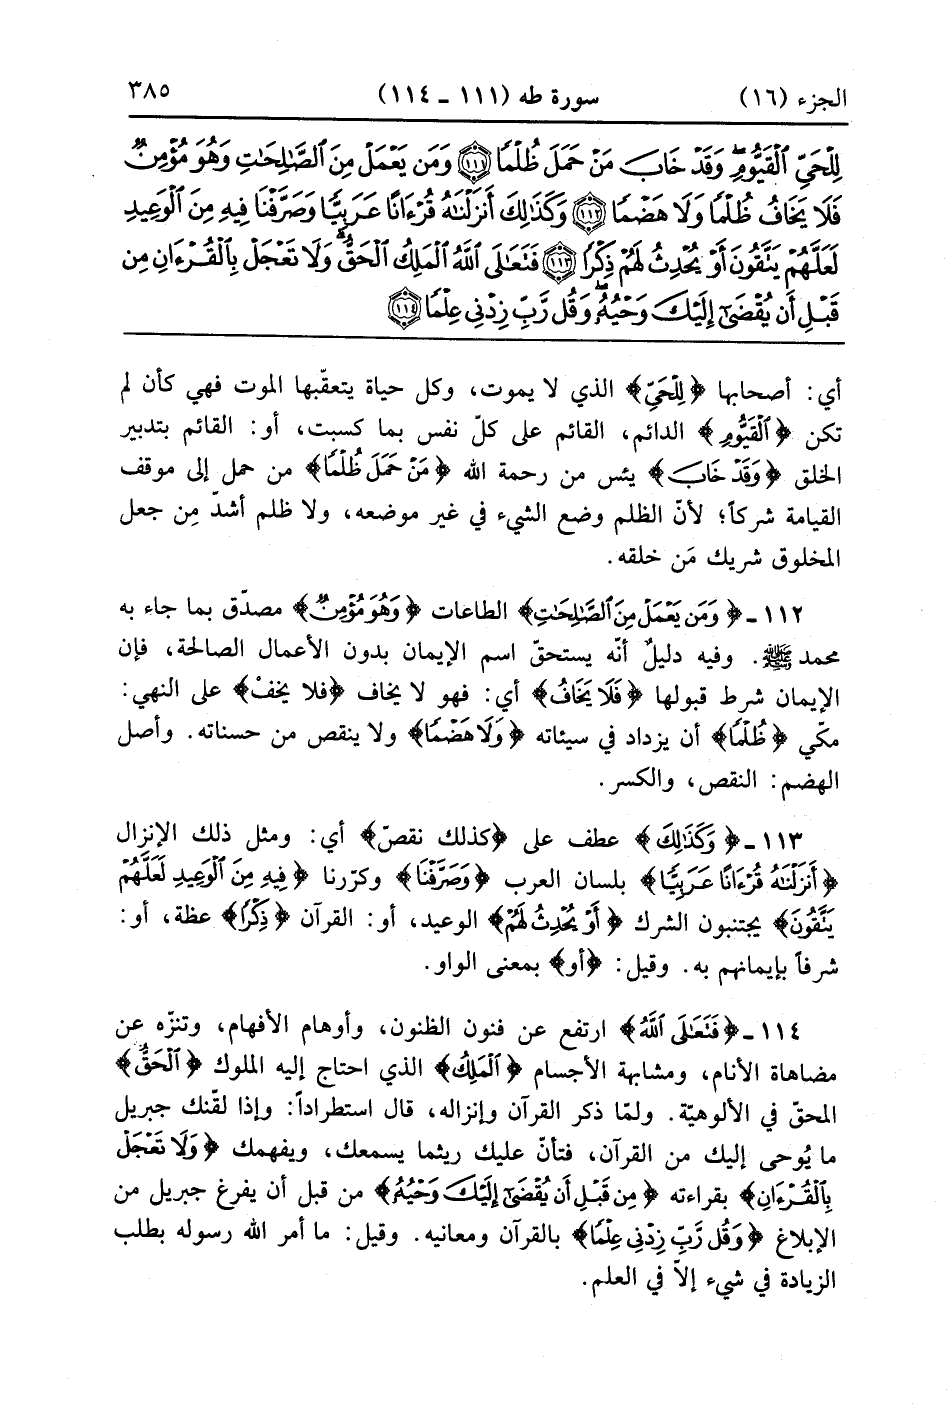 الجزء (١٦) سورة طه (١١١ ـ ١١٤) ٣٨٥
لِلْحَيِّ ٱلْقَيُّومِۖ وَقَدْ خَابَ مَنْ حَمَلَ ظُلْمًا ١١١ وَمَن يَعْمَلْ مِنَ ٱلصَّٰلِحَٰتِ وَهُوَ مُؤْمِنٌ
فَلَا يَخَافُ ظُلْمًا وَلَا هَضْمًا ١١٢ وَكَذَٰلِكَ أَنزَلْنَٰهُ قُرْءَانًا عَرَبِيًّا وَصَرَّفْنَا فِيهِ مِنَ ٱلْوَعِيدِ
لَعَلَّهُمْ يَتَّقُونَ أَوْ يُحْدِثُ لَهُمْ ذِكْرًا ١١٣ فَتَعَٰلَى ٱللَّهُ ٱلْمَلِكُ ٱلْحَقُّۗ وَلَا تَعْجَلْ بِٱلْقُرْءَانِ مِن
قَبْلِ أَن يُقْضَىٰٓ إِلَيْكَ وَحْيُهُۥۖ وَقُل رَّبِّ زِدْنِى عِلْمًا ١١٤
أي: أصحابها ﴿لِلْحَيِّ﴾ الذي لا يموت، وكل حياة يتعقّبها الموت فهي كأن لم
تكن ﴿ٱلْقَيُّومِ﴾ الدائم، القائم على كلّ نفس بما كسبت، أو: القائم بتدبير
الخلق ﴿وَقَدْ خَابَ﴾ يئس من رحمة الله ﴿مَنْ حَمَلَ ظُلْمًا﴾ من حمل إلى موقف
القيامة شركاً؛ لأنّ الظلم وضع الشيء في غير موضعه، ولا ظلم أشدّ مِن جعل
المخلوق شريك مَن خلقه.
١١٢ ـ ﴿وَمَن يَعْمَلْ مِنَ ٱلصَّٰلِحَٰتِ﴾ الطاعات ﴿وَهُوَ مُؤْمِنٌ﴾ مصدّق بما جاء به
محمد ﷺ. وفيه دليلٌ أنّه يستحقّ اسم الإيمان بدون الأعمال الصالحة، فإن
الإيمان شرط قبولها ﴿فَلَا يَخَافُ﴾ أي: فهو لا يخاف ﴿فلا يخفْ﴾ على النهي:
مكّي ﴿ظُلْمًا﴾ أن يزداد في سيئاته ﴿وَلَا هَضْمًا﴾ ولا ينقص من حسناته. وأصل
الهضم: النقص، والكسر.
١١٣ ـ ﴿وَكَذَٰلِكَ﴾ عطف على ﴿كذلك نقصّ﴾ أي: ومثل ذلك الإنزال
﴿أَنزَلْنَٰهُ قُرْءَانًا عَرَبِيًّا﴾ بلسان العرب ﴿وَصَرَّفْنَا﴾ وكرّرنا ﴿فِيهِ مِنَ ٱلْوَعِيدِ لَعَلَّهُمْ
يَتَّقُونَ﴾ يجتنبون الشرك ﴿أَوْ يُحْدِثُ لَهُمْ﴾ الوعيد، أو: القرآن ﴿ذِكْرًا﴾ عظة، أو:
شرفاً بإيمانهم به. وقيل: ﴿أو﴾ بمعنى الواو.
١١٤ ـ ﴿فَتَعَٰلَى ٱللَّهُ﴾ ارتفع عن فنون الظنون، وأوهام الأفهام، وتنزّه عن
مضاهاة الأنام، ومشابهة الأجسام ﴿ٱلْمَلِكُ﴾ الذي احتاج إليه الملوك ﴿ٱلْحَقُّ﴾
المحقّ في الألوهيّة. ولمّا ذكر القرآن وإنزاله، قال استطراداً: وإذا لقّنك جبريل
ما يُوحى إليك من القرآن، فتأنّ عليك ريثما يسمعك، ويفهمك ﴿وَلَا تَعْجَلْ
بِٱلْقُرْءَانِ﴾ بقراءته ﴿مِن قَبْلِ أَن يُقْضَىٰٓ إِلَيْكَ وَحْيُهُۥ﴾ من قبل أن يفرغ جبريل من
الإبلاغ ﴿وَقُل رَّبِّ زِدْنِى عِلْمًا﴾ بالقرآن ومعانيه. وقيل: ما أمر الله رسوله بطلب
الزيادة في شيء إلاّ في العلم.